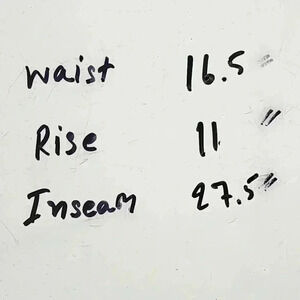 Waist 16.5"
Rise 11"
Inseam 27.5"